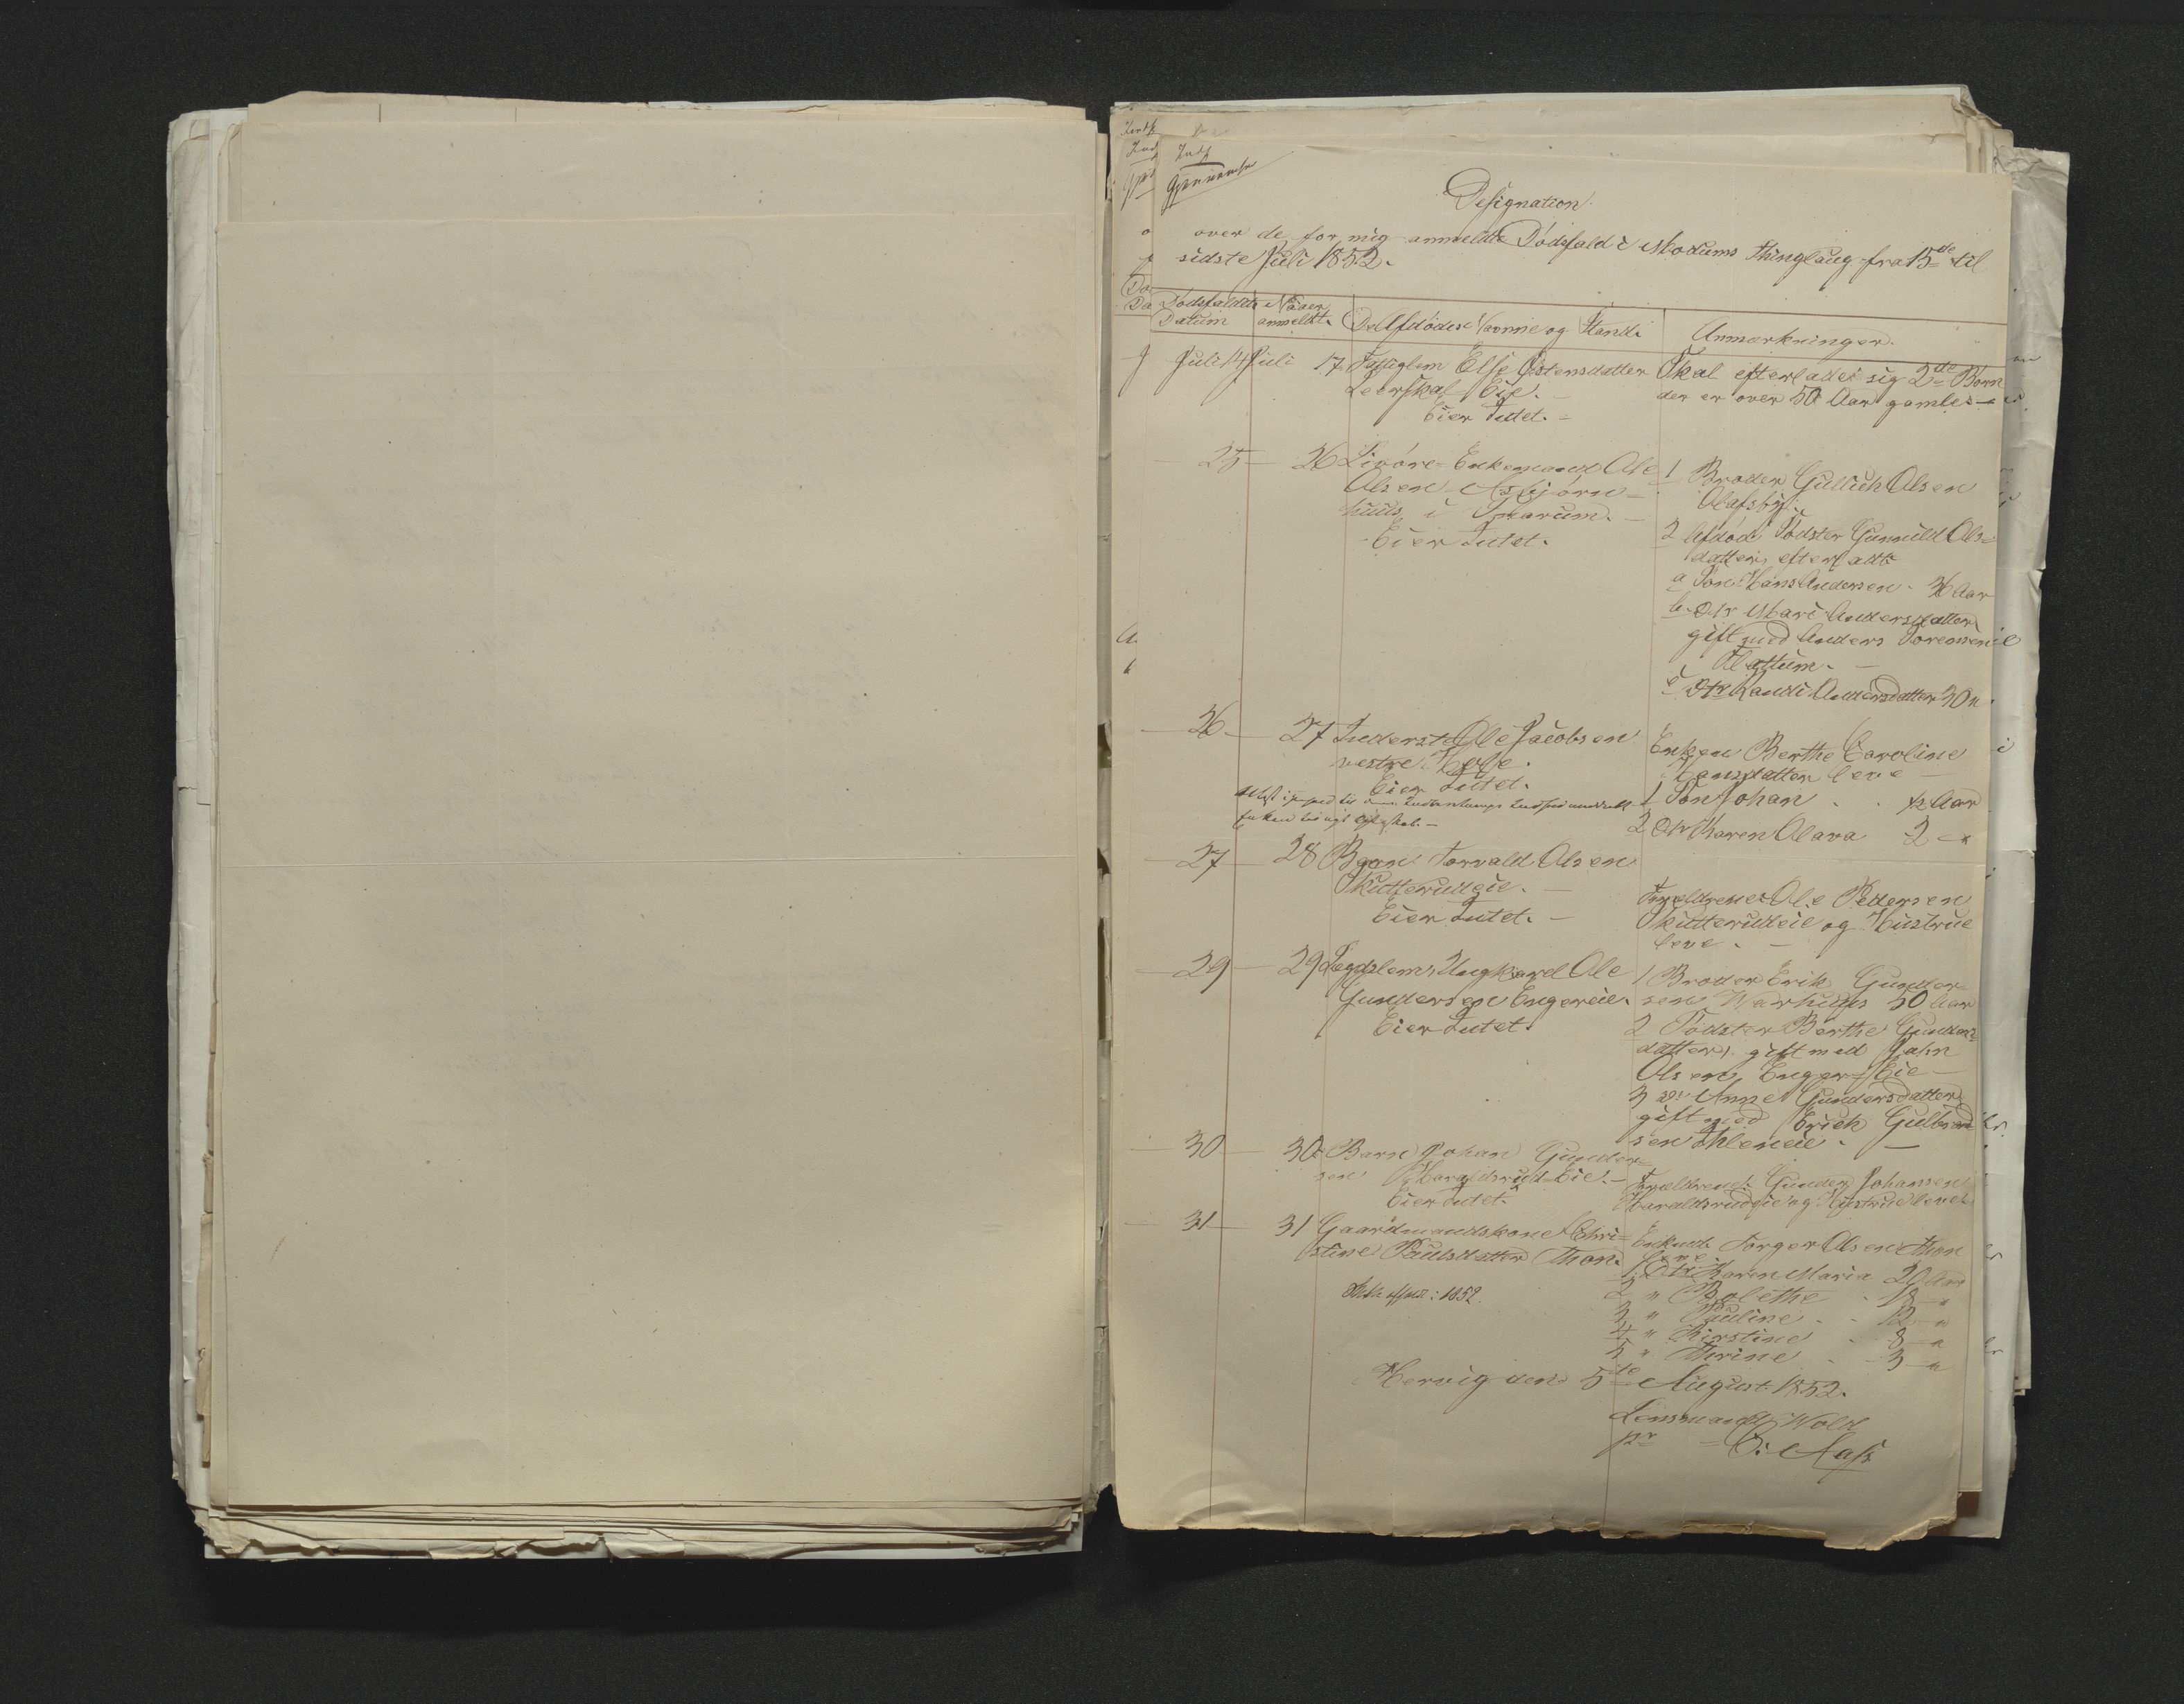 Indf
Gjennemset
Designation
over de for mig anmeldte Dödsfald i Modums Thinglaug fra 15de til
sidste Juli 1852.
Dödsfaldets Datum
Naar anmeldt.
De Afdödes Navne og Stand.
Anmærkninger.
Juli 14 Juli 17 Fattiglem Else Östensdatter
Leerskal Eie.
Eier Intet.
Skal efterladet sig 2de Börn
der er over 50 Aar gamle
25 26 Livöre Enkemand Ole
Olsen Asbjörn=
huus i Snarum.
Eier Intet.
1 Broder Gullick Olsen
Olafsby.
2 Afdöd Södster Gunnild Ols=
datter, efterladt
a Sön Hans Andersen 36 Aar
b. Dtr Mari Andersdatter
gift med Anders Sörensen
c Dtr Randi Andersdatter 30 "
26 27 Inderst Ole Jacobsen
vestre Hole.
Eier Intet.
Enken Berthe Caroline
Hansdatter leve
1 Sön Johan 1/2 Aar
2 Dtr Karen Olava 2 "
27 28 Barn Torvald Olsen
Skutterudeie.
Eier Intet.
Forældrene Ole Pedersen
Skutterudeie og Hustrue
leve.
29 29 Lægdslem Ungkarl Ole
Gundersen Engereie.
Eier Intet.
1 Broder Erik Gunder=
sen Værhuus 50 Aar
2 Södster Berthe Gunders=
datter, gift med John
Olsen Enger Eie
3 do Anne Gundersdatter
gift med Erich Gulbrand
sen Ihleneie.
30 30 Barn Johan Gunder=
sen Haraldsrud Eie.
Eier Intet.
Forældrene Gunder Johansen
Haraldsrudeie og Hustrue leve
31 31 Gaardmandskone Chri=
stine Paulsdatter Thon.
Enkem. Torger Olsen Thon
leve.
1 Dtr Karen Maria 20 Aar
2 " Bolethe 18 "
3 " Pauline 12 "
4 " Kirstine 8 "
5 " Thrine 3 "
Hervig den 5te August 1852.
Lensmand Wold
pr